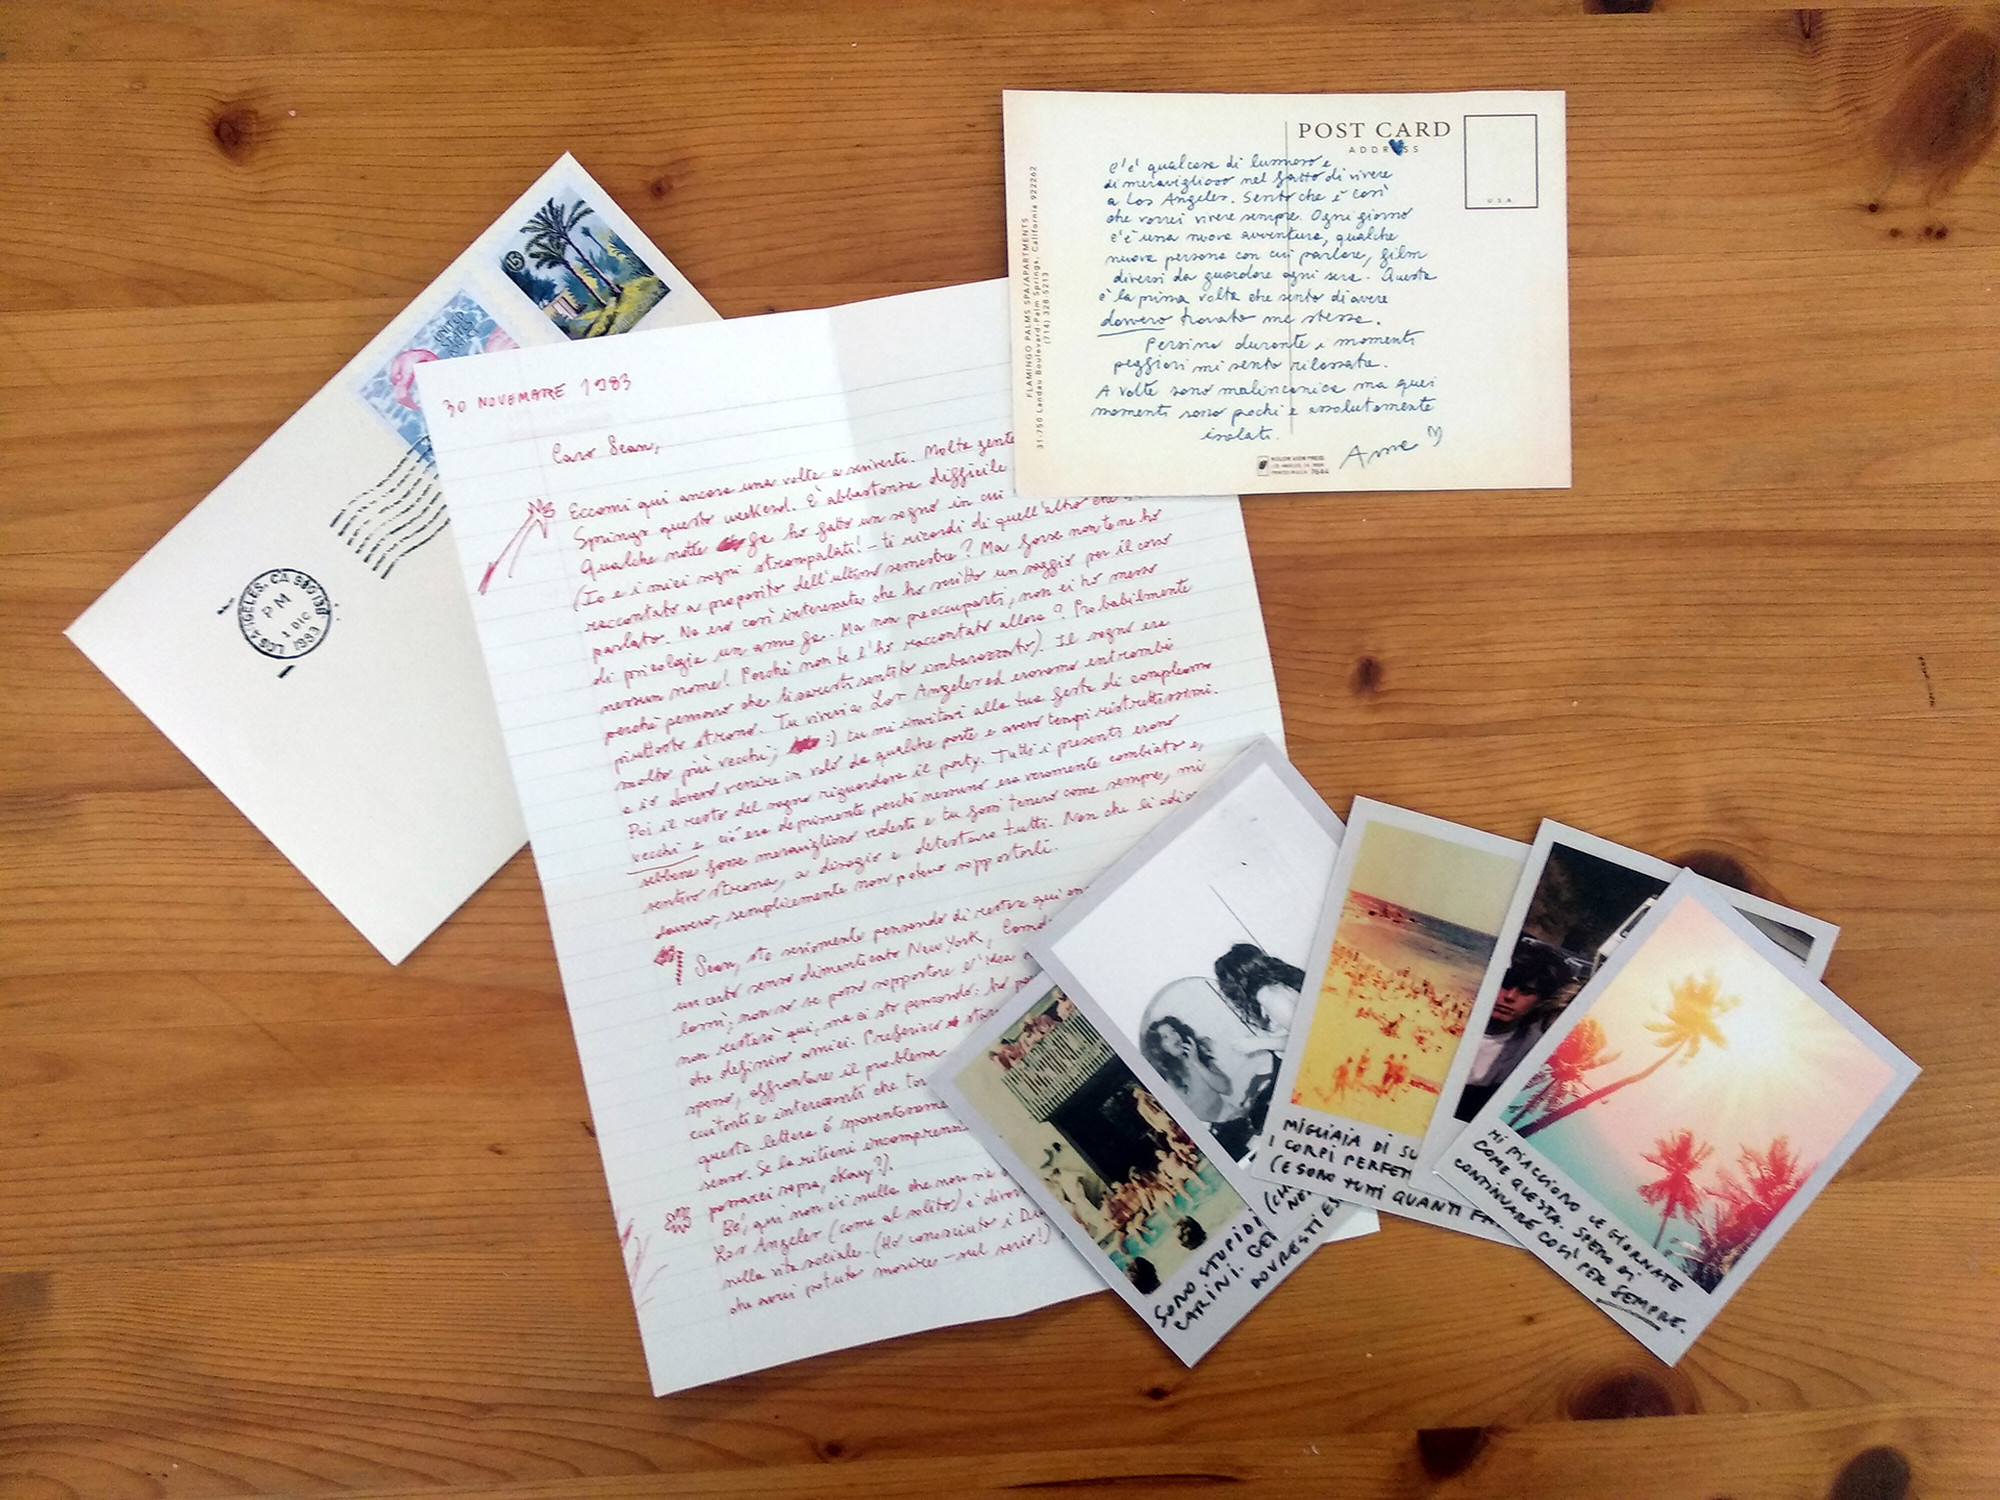 POST CARD
ADDRESS
USA
FLAMINGO PALMS SPA/APARTMENTS
31-750 Landau Boulevard-Palm Springs, California 922262
(714) 328-5213
c'è qualcosa di luminoso e
di meraviglioso nel fatto di vivere
a Los Angeles. Sento che è così
che vorrei vivere sempre. Ogni giorno
c'è una nuova avventura, qualche
nuova persona con cui parlare, film
diversi da guardare ogni sera. Questa
è la prima volta che sento di avere
davvero trovato me stessa.
Persino durante i momenti
peggiori mi sento rilassata.
A volte sono malinconica ma quei
momenti sono pochi e assolutamente
isolati.
Anne
KOLOR VIEW PRESS
LOS ANGELES, CA
PRINTED IN U.S.A. 7644
UNITED
STATES
15
LOS ANGELES, CA
PM
1 DIC
1983
30 NOVEMBRE 1983
Caro Sean,
Eccomi qui ancora una volta a scriverti. Molta gente
Springs questo weekend. È abbastanza difficile
Qualche notte fa ho fatto un sogno in cui
(Io e i miei sogni strampalati! - ti ricordi di quell'altro che
raccontato a proposito dell'ultimo semestre? Ma forse non te ne ho
parlato. Ne ero così interessata che ho scritto un saggio per il corso
di psicologia un anno fa. Ma non preoccuparti, non ci ho messo
nessun nome! Perché non te l'ho raccontato allora? Probabilmente
perché pensavo che ti saresti sentito imbarazzato). Il sogno era
piuttosto strano. Tu vivevi a Los Angeles ed eravamo entrambi
molto più vecchi; :) tu mi invitavi alla tua festa di compleanno
e io dovevo venire in volo da qualche parte e avevo tempi ristrettissimi.
Poi il resto del sogno riguardava il party. Tutti i presenti erano
vecchi e ciò era deprimente perché nessuno era veramente cambiato e,
sebbene fosse meraviglioso vederti e tu fossi tenero come sempre, mi
sentivo strana, a disagio e detestavo tutti. Non che li odi
davvero, semplicemente non potevo sopportarli.
Sean, sto seriamente pensando di restare qui
un certo senso dimenticato New York, Camd
lassù; non so se posso sopportare l'idea
non resterò qui, ma ci sto pensando: ho
che definivo amici. Preferisco
spero, affrontare il problema
eccitanti e interessanti che
questa lettera è spaventosame
senso. Se la ritieni incomprensi
passarci sopra, okay?).
Bé, qui non c'è nulla che non
Los Angeles (come al solito) è
nulla vita sociale. (Ho conosciuto i
che avrei potuto morire - sul serio!)
SONO STUPIDI
CARINI.
DOVRESTI
MIGLIAIA DI
I CORPI PERFETTI
(E SONO TUTTI QUANTI
MI PIACCIONO LE GIORNATE
COME QUESTA. SPERO DI
CONTINUARE COSÌ PER SEMPRE.